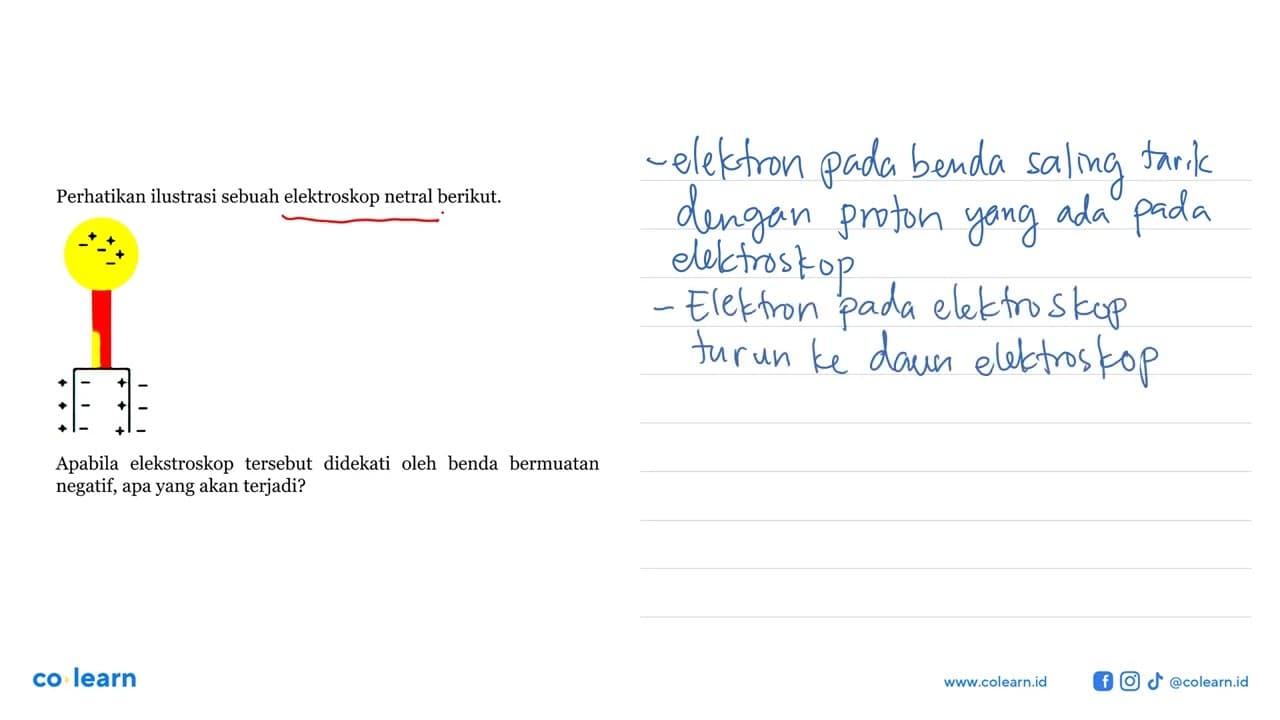 Perhatikan ilustrasi sebuah elektroskop netral berikut.
Apabila elekstroskop tersebut didekati oleh benda bermuatan
negatif, apa yang akan terjadi?
- elektron pada benda saling tarik
dengan proton yang ada pada
elektroskop
- Elektron pada elektroskop
turun ke daun elektroskop
co learn
www.colearn.id
@colearn.id